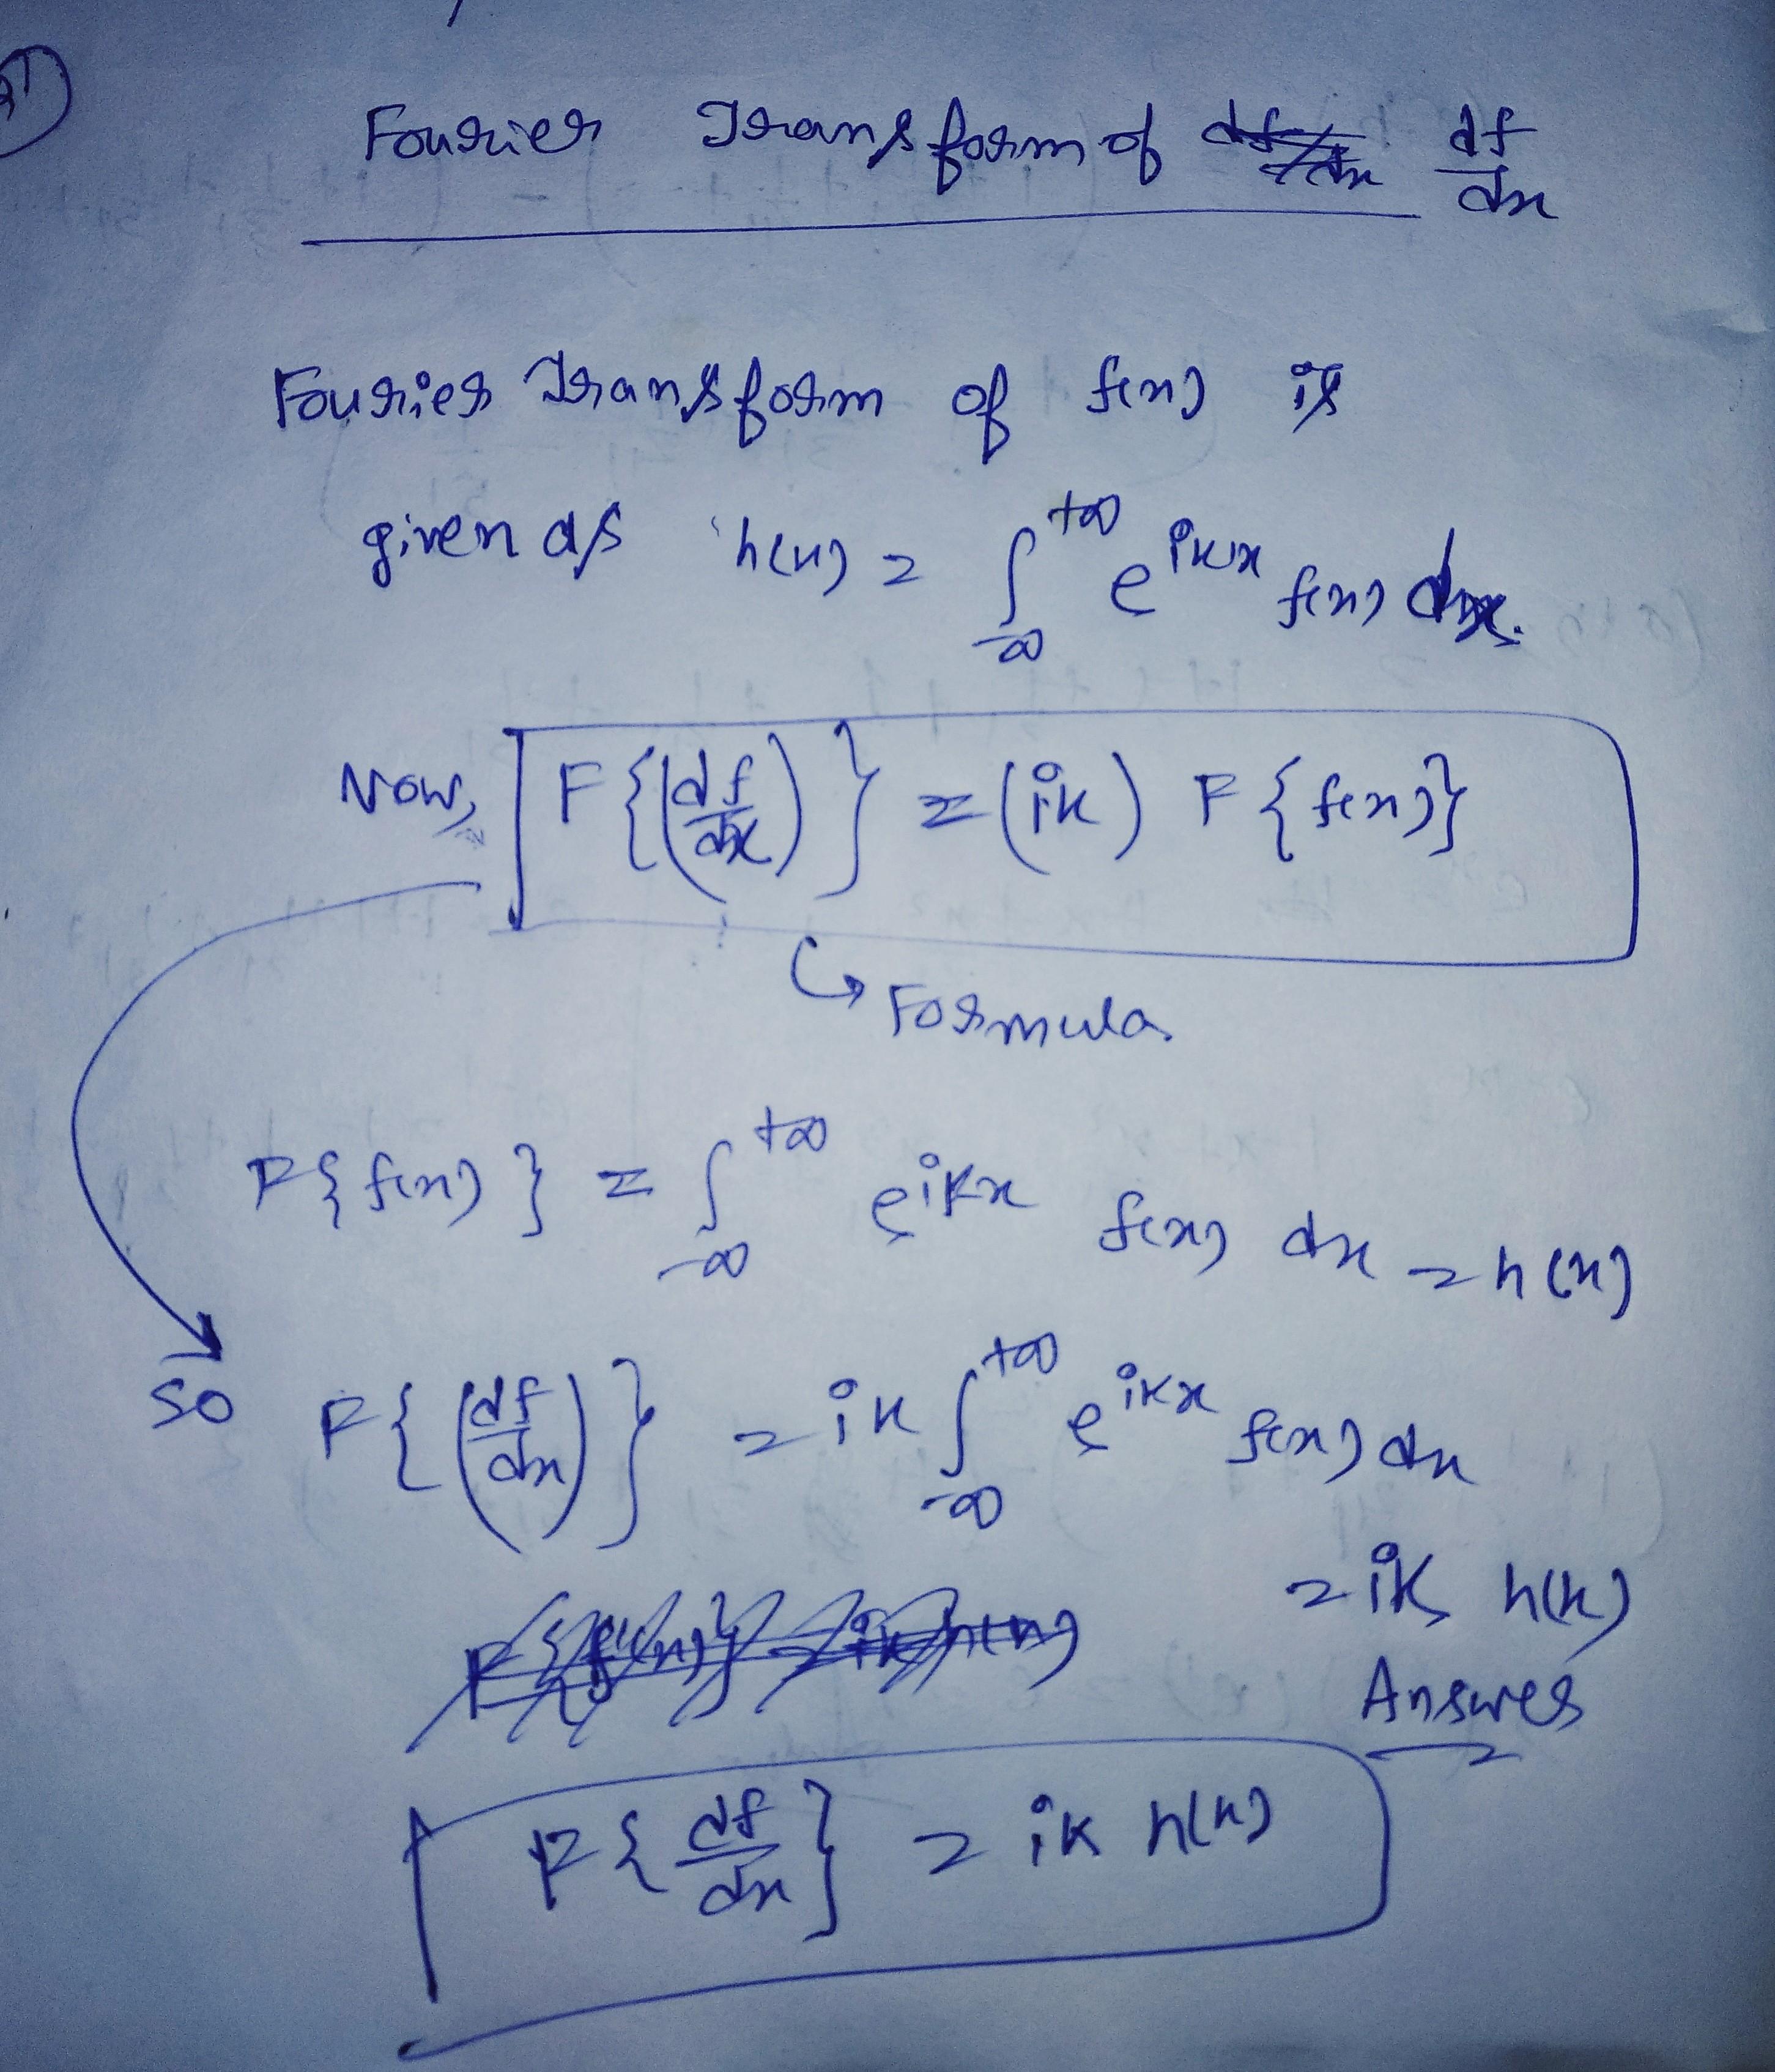 Fourier Transform of df/dx df/dx
Fourier Transform of f(x) is
given as h(k) = ∫_{-∞}^{+∞} e^{ikx} f(x) dx.
Now, F{(df/dx)} = (ik) F{f(x)}
↳ Formula
F{f(x)} = ∫_{-∞}^{+∞} e^{ikx} f(x) dx = h(k)
so F{(df/dx)} = ik ∫_{-∞}^{+∞} e^{ikx} f(x) dx
= ik h(k)
Answer
F{df/dx} = ik h(k)